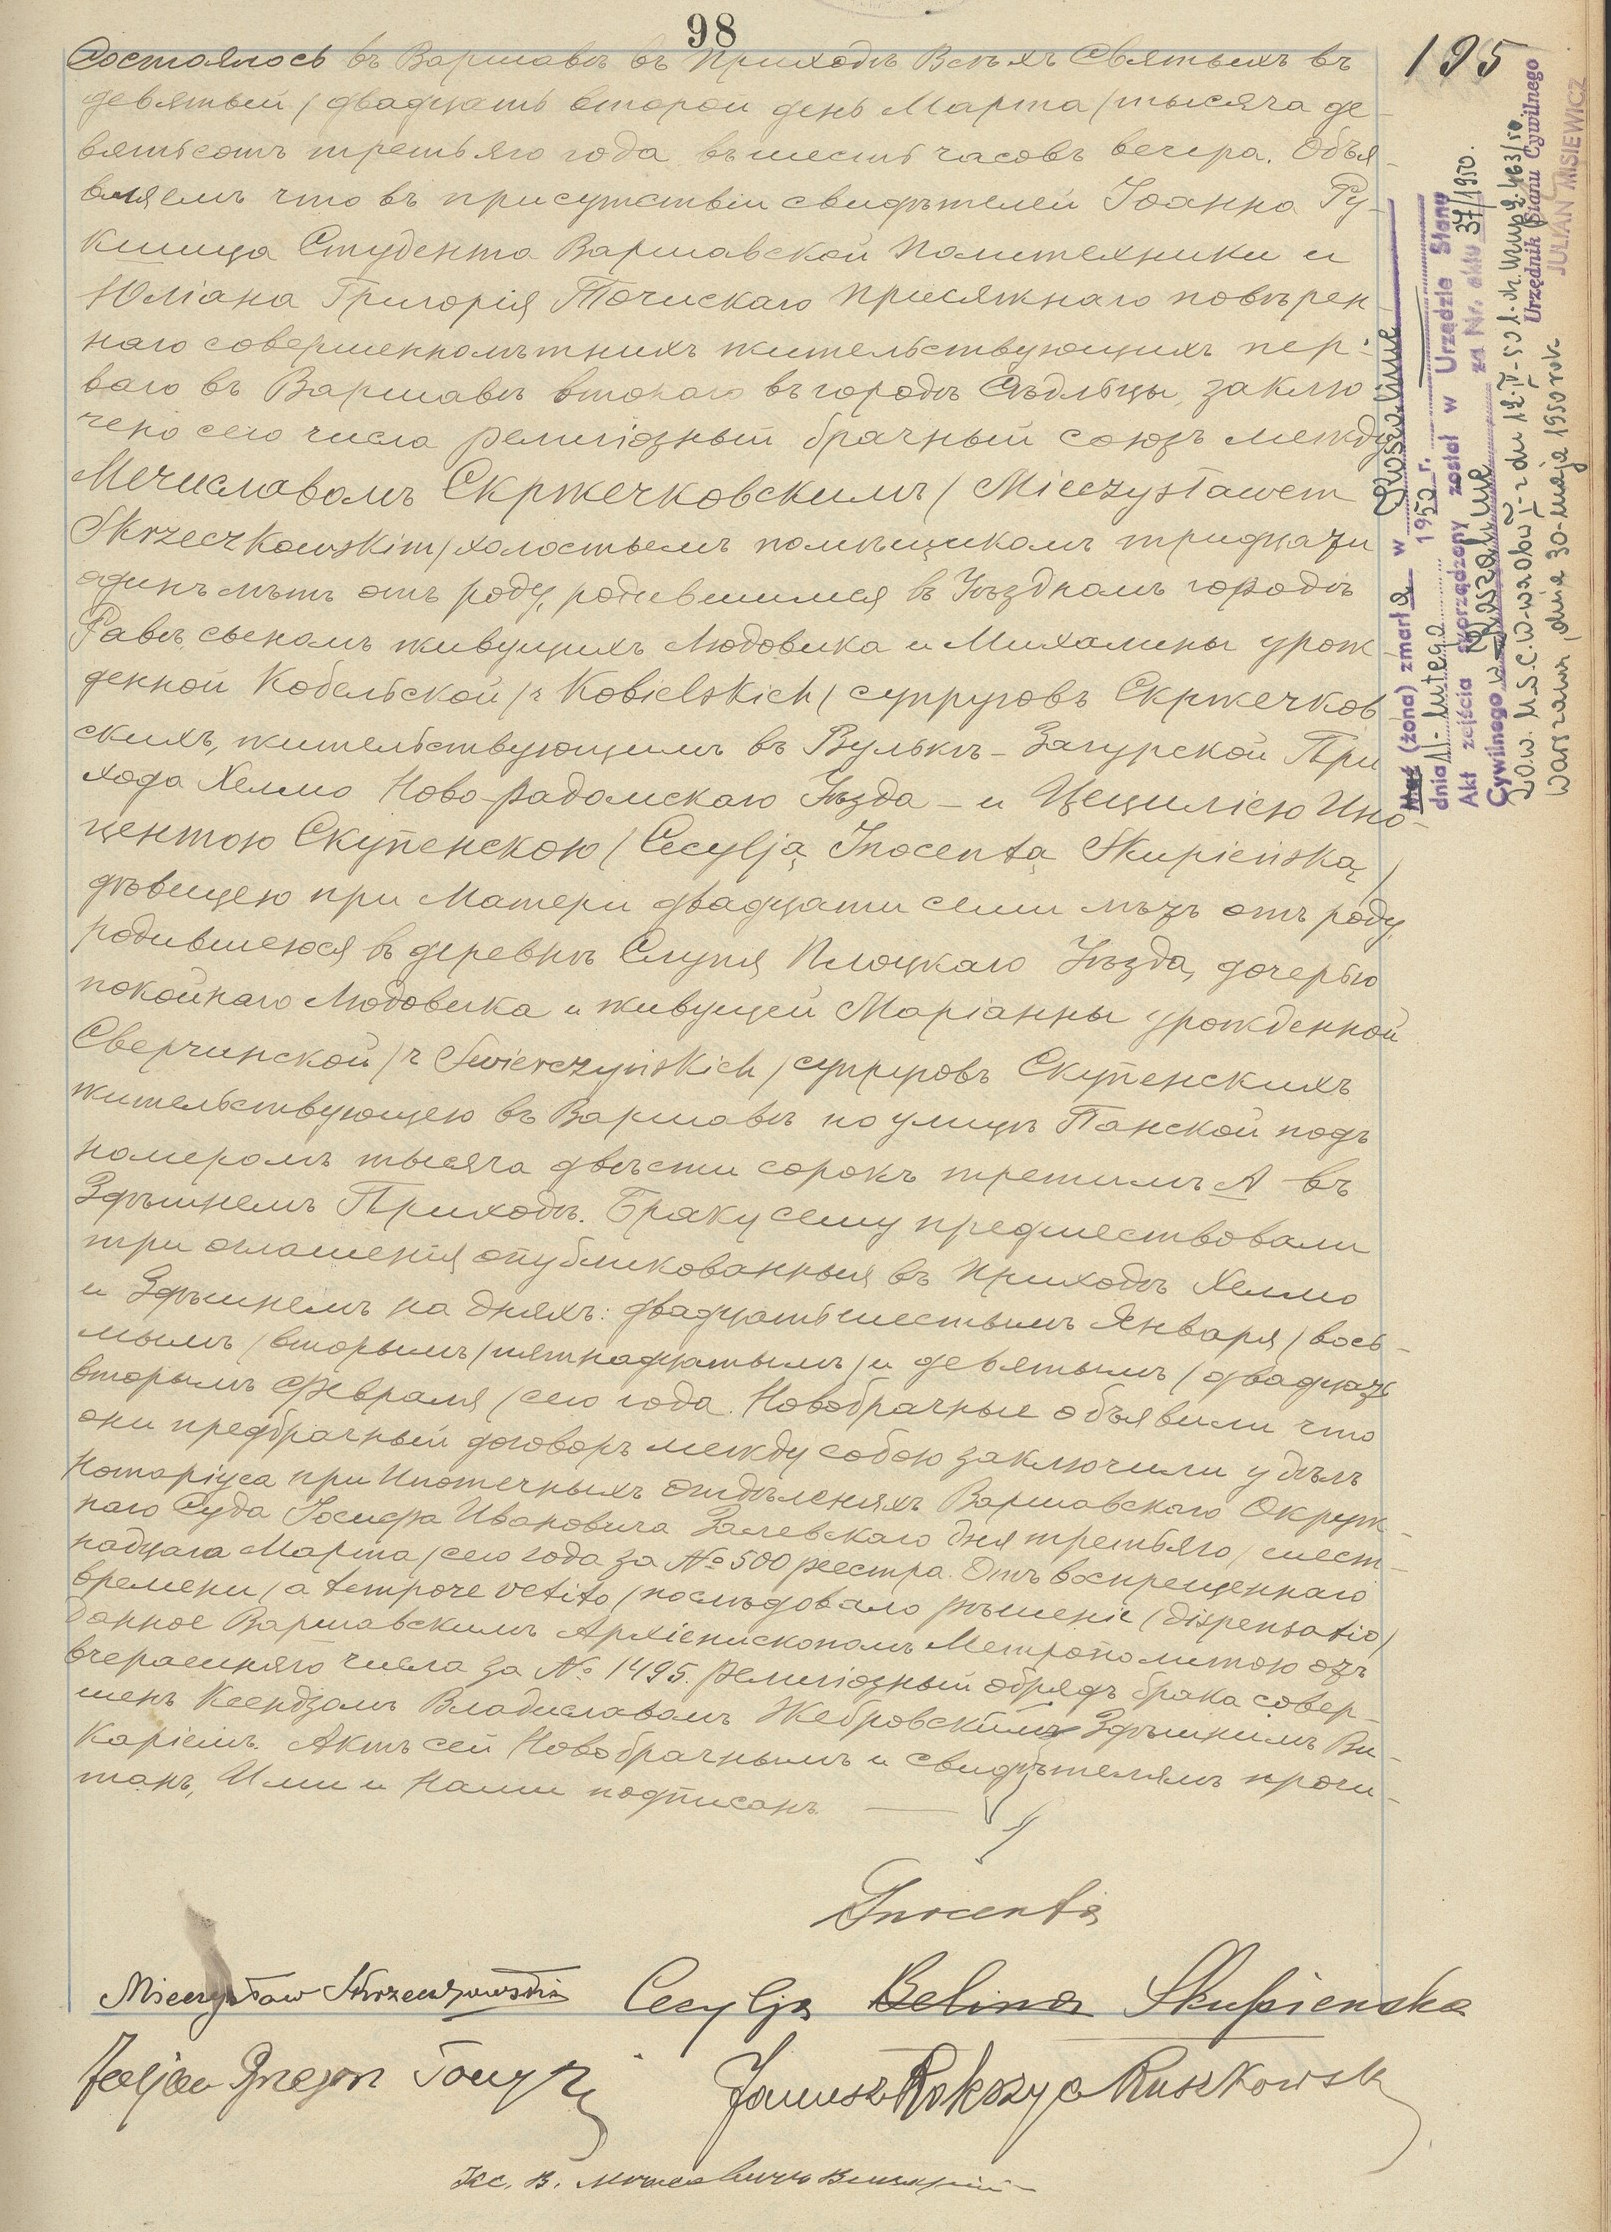 98
195
Состоялось въ Варшавѣ въ Приходѣ Всѣхъ Святыхъ въ
девятый / двадцать второй день Марта / тысяча де-
вятьсотъ третьяго года въ шесть часовъ вечера. Объя-
вляемъ что въ присутствіи свидѣтелей Іоанна Ру-
кшица Студента Варшавской Политехники и
Юліана Григорія Точискаго Присяжнаго повѣрен
наго совершеннолѣтнихъ жительствующихъ пер-
ваго въ Варшавѣ втораго въ городѣ Сѣдльцы, заклю
чено сего числа религіозный брачный союзъ между
Мечиславомъ Скржечковскимъ / Mieczysławem
Skrzeczkowskim / холостымъ помѣщикомъ тридцати
одинъ лѣтъ отъ роду, родившимся въ Уѣздномъ городѣ
Равѣ, сыномъ живущихъ Людовика и Михалины урож-
денной Кобельской / z Kobielskich / супруговъ Скржечков
скихъ, жительствующимъ въ Вулькѣ-Загурской При
хода Хелмо Ново-радомскаго Уѣзда – и Цециліею Ино-
центою Скупенскою / Cecylją Inocentą Skupieńską /
дѣвицею при Матери двадцати семи лѣтъ отъ роду,
родившеюся въ деревнѣ Слупя Плоцкаго Уѣзда, дочерью
покойнаго Людовика и живущей Маріанны урожденной
Сверчинской / z Świerczyńskich / супруговъ Скупенскихъ
жительствующею въ Варшавѣ по улицѣ Панской подъ
номеромъ тысяча двѣсти сорокъ третимъ А въ
Здѣшнемъ Приходѣ. Браку сему предшествовали
три оглашенія опубликованныя въ Приходѣ Хелмо
и Здѣшнемъ на дняхъ: двадцать шестымъ Января / вось-
мымъ / вторымъ / пятнадцатымъ / и девятымъ / двадцать
вторымъ Февраля / сего года. Новобрачные объявили что
они предбрачный договоръ между собою заключили у дѣлъ
Нотаріуса при Ипотечныхъ Отдѣленіяхъ Варшавскаго Окруж-
наго Суда Іосифа Ивановича Залевскаго дня третьяго / шест-
надцаго Марта / сего года за № 500 реестра. Отъ воспрещеннаго
времени / a tempore vetito / послѣдовало рѣшеніе / dispensatio /
данное Варшавскимъ Архіепископомъ Митрополитою отъ
вчерашняго числа за № 1495. Религіозный обрядъ брака совер-
шенъ Ксендзомъ Владиславомъ Жебровскимъ Здѣшнимъ Ви-
каріемъ. Актъ сей Новобрачнымъ и свидѣтелямъ прочи-
танъ, Ими и Нами подписанъ
Inocenta
Mieczysław Skrzeczkowski Cecylja Belina Skupienska
Juljan Gregor Janusz Rukszyc Ruszkowski
Кс. В.
Mąż (żona) zmarła w Koszalinie
dnia 11-lutego 1950 r.
Akt zejścia sporządzony został w Urzędzie Stanu
Cywilnego w Koszalinie za Nr. aktu 37/1950.
Warszawa, dnia 30-maja 1950 rok
Urzędnik Stanu Cywilnego
JULIAN MISIEWICZ